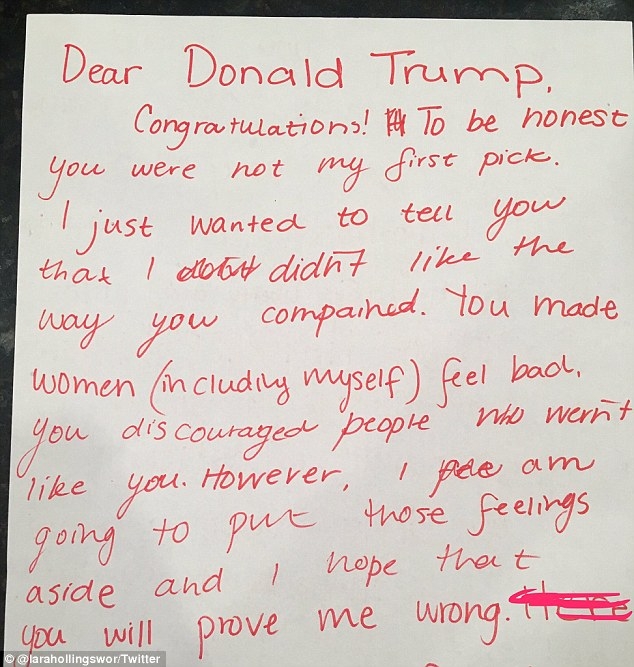 Dear Donald Trump,
Congratulations! To be honest
you were not my first pick.
I just wanted to tell you
that I didn't like the
way you compained. You made
women (including myself) feel bad.
You discouraged people who wern't
like you. However, I am
going to put those feelings
aside and I hope that
you will prove me wrong.
© @larahollingswor/Twitter